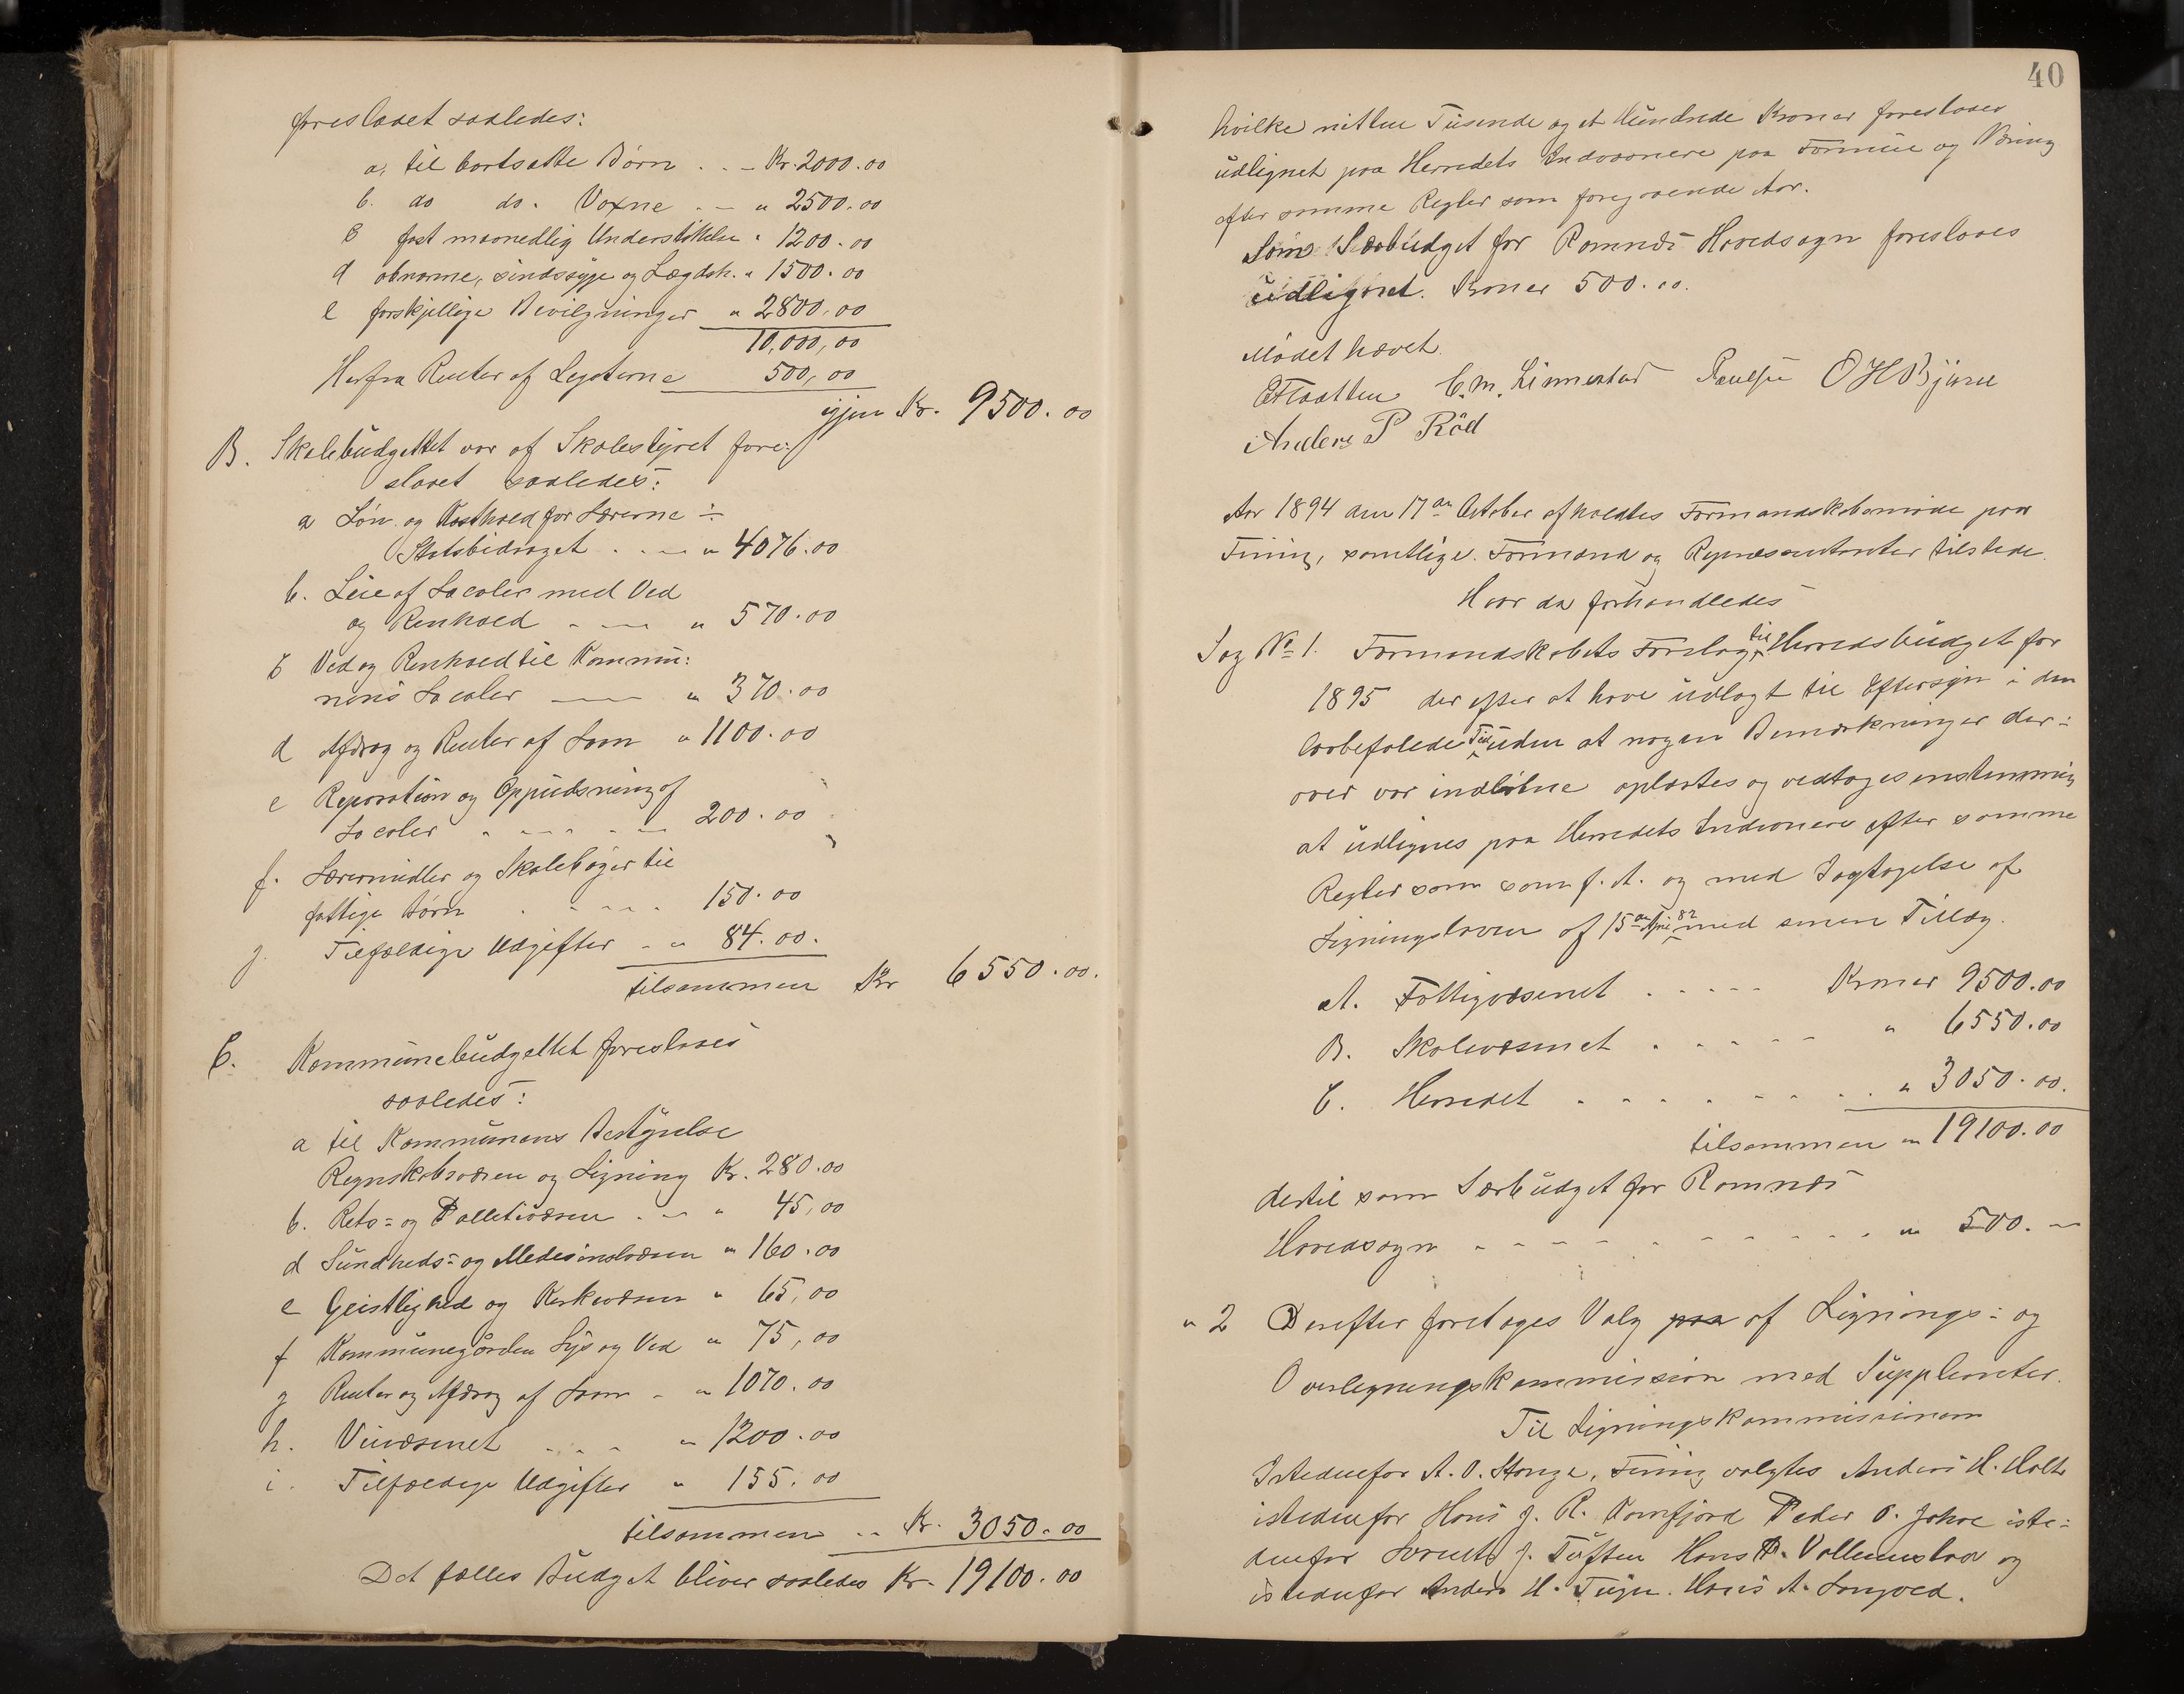 foreslaaet saaledes:
a, til bortsatte Børn . . – Kr. 2000.00
b. do do. Voxne . – " 2500.00
c fast maanedlig Understøttelse " 1200.00
d abnorme, sindssyge og Lægdsh. " 1500.00
e forskjellige Bevilgninger " 2800.00
10,000,00
Herfra Renter af Legaterne 500,00
igjen Kr. 9500.00
B. Skolebudgettet var af Skolestyret fore:
slaaet saaledes:
a Løn og Kosthold for Lærerne ÷
Statsbidraget . . – " 4076.00
b. Leie af Locoler med Ved
og Renhold – – " 570.00
c Ved og Renhold til Kommu:
nens Locoler — " 370.00
d Afdrag og Renter af Laan " 1100.00
e Reparation og Oppudsning af
Locoler . – – – 200.00
f. Læremidler og Skolebøger til
fattige Børn . – – – 150.00
g. Tilfældige Udgifter – " 84.00.
tilsammen Kr 6550.00.
C. Kommunebudgettet foreslaaes
saaledes:
a til Kommunens Bestyrelse
Regnskabsvæsen og Ligning Kr. 280.00
b. Rets= og Polletivæsen . – " 45,00
d Sundheds= og Medesinalvæsen " 160.00
e Geistlighed og Kirkevæsen " 65,00
f Kommunegården Lys og Ved " 75,00
g Renter og Afdrag af Laan – " 1070.00
h. Veivæsenet . . – " 1200.00
i. Tilfældige Udgifter " 155.00
tilsammen .. Kr. 3050.00
Det fælles Budget bliver saaledes Kr. 19100.00
40
hvilke nitten Tusende og et Hundrede Kroner foreslaaes
udlignet paa Herredets Indvaanere paa Formue og Næring
efter samme Regler som foregaaende Aar.
Som Særbudget for Romnæs Hovedsogn foreslaaes
udlignet. Kroner 500.00.
Mødet hævet.
C. M. Linnestad Paulsen O H Bjerva
Anders P Röd
Aar 1894 den 17de October afholdtes Formandskabsmøde paa
Fining, samtlige Formænd og Repræsentanter tilstede.
Hvor da forhandledes
Sag No 1. Formandskabets Forslag til Herredsbudget for
1895 der efter at have udlagt til Eftersyn i den
lovbefalede Tid uden at nogen Bemærkninger der=
over var indkomne oplæstes og vedtoges enstemmig
at udlignes paa Herredets Indvonere efter samme
Regler som som f. A. og med Iagtagelse af
Ligningsloven af 15de April 82 med senere Tillæg.
A. Fattigvæsenet . . – – – Kroner 9500.00
B. Skolevæsenet . . – – – " 6550.00
C. Herredet – – – – – – . " 3050.00.
tilsammen " 19100.00
dertil som Særbudget for Romnæs
Hovedsogn – – – – – – – – – " 500. –
" 2 Derefter foretoges Valg paa af Lignings= og
Overligningskommission med Supplenter.
Til Ligningskommissionen
Istedenfor A. O. Stange, Fining valgtes Anders H. Holte
istedenfor Hans J. R. Kamfjord Peder O. Johre iste=
denfor J. Tuften Hans P. Vollemstad og
istedenfor Anders H. Hans A. Langved.